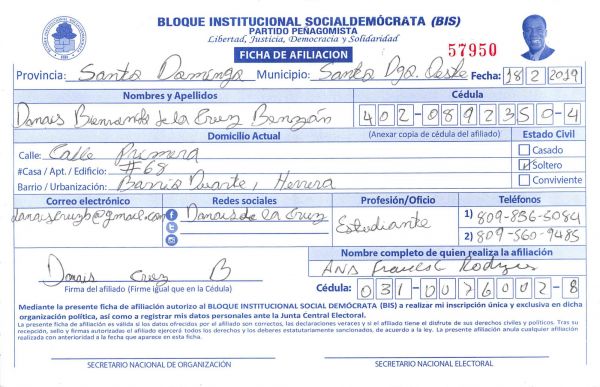 BLOQUE INSTITUCIONAL SOCIALDEMÓCRATA (BIS)
PARTIDO PEÑAGOMISTA
Libertad, Justicia, Democracia y Solidaridad
FICHA DE AFILIACION
57950
Provincia: Santo Domingo Municipio: Santo Dgo. Oeste Fecha: 18/2/2019
Nombres y Apellidos Cédula
Danais Bienvenido de la Cruz Benzán 402-0892350-4
Domicilio Actual (Anexar copia de cédula del afiliado) Estado Civil
Calle: Calle Primera Casado
#Casa / Apt. / Edificio: #68 Soltero
Barrio / Urbanización: Barrio Duarte, Herrera Conviviente
Correo electrónico Redes sociales Profesión/Oficio Teléfonos
danaiscruzb@gmail.com Danais de la Cruz Estudiante 1) 809-836-5084
2) 809-560-9485
Nombre completo de quien realiza la afiliación
Danais Cruz B Ana
Firma del afiliado (Firme igual que en la Cédula) Cédula: 031-0076002-8
Mediante la presente ficha de afiliación autorizo al BLOQUE INSTITUCIONAL SOCIAL DEMÓCRATA (BIS) a realizar mi inscripción única y exclusiva en dicha
organización política, así como a registrar mis datos personales ante la Junta Central Electoral.
La presente ficha de afiliación es válida si los datos ofrecidos por el afiliado son correctos, las declaraciones veraces y si el afiliado tiene el disfrute de sus derechos civiles y políticos. Tras su
recepción, sello y firmas autorizadas el afiliado ejercerá todos los derechos y los deberes estatutariamente sancionados, de acuerdo a la ley. La presente afiliación anula cualquier afiliación
realizada con anterioridad a la fecha que aparece en esta ficha.
SECRETARIO NACIONAL DE ORGANIZACIÓN SECRETARIO NACIONAL ELECTORAL